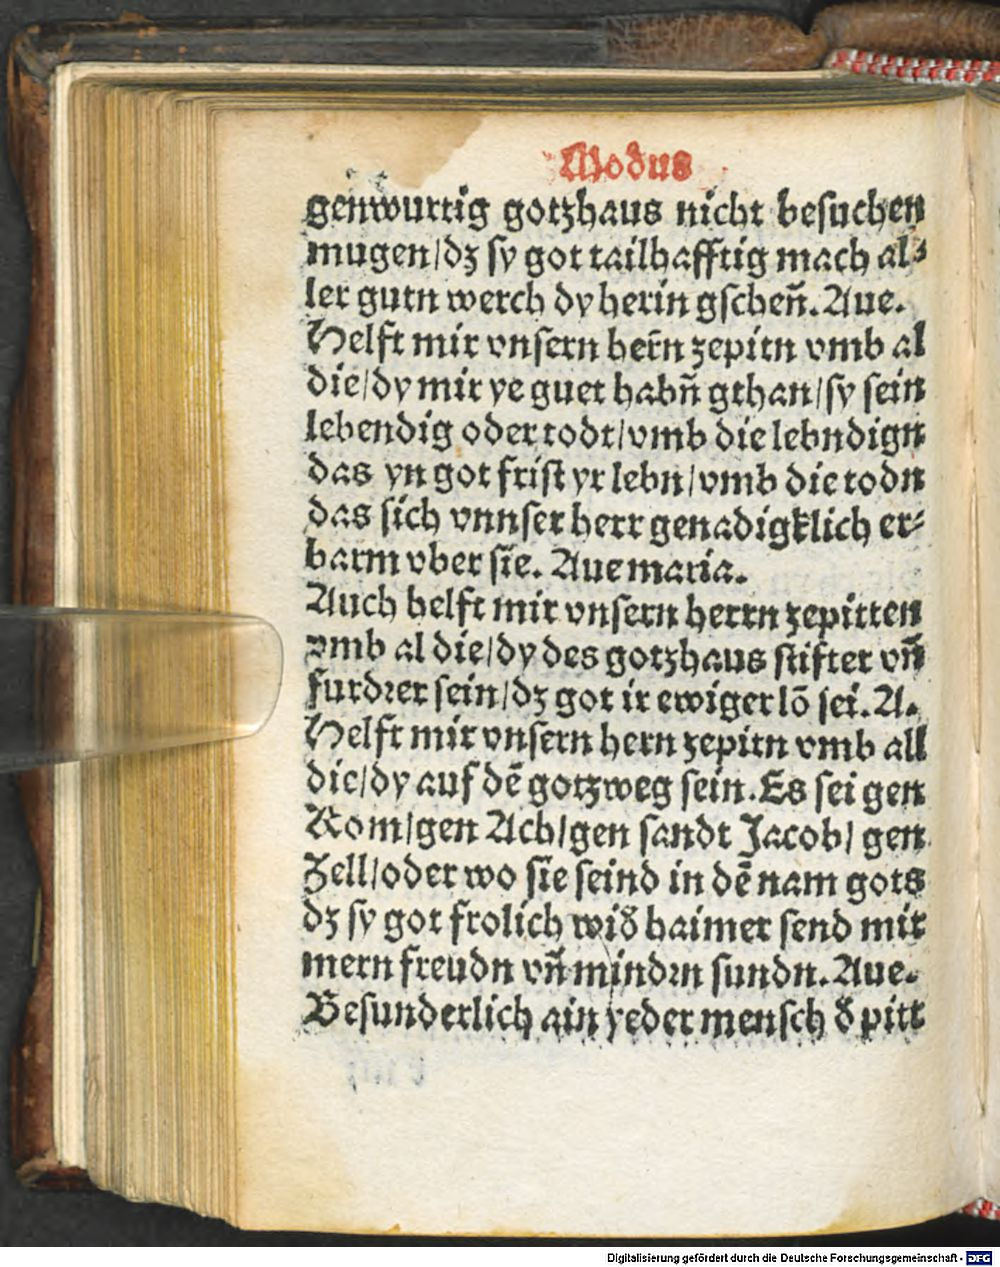 Modus
genwurtig gotzhaus nicht besuchen
mugen/dz sy got tailhafftig mach al⸗
ler gutn werch dy herin gscheñ. Aue.
Helft mir vnsern her̃n zepitn vmb al
die/dy mir ye guet habñ gthan/sy sein
lebendig oder todt/vmb die lebndign
das yn got frist yr lebn/vmb die todn
das sich vnnser herr genadigklich er⸗
barm vber sie. Aue maria.
Auch helft mir vnsern herrn zepitten
vmb al die/dy des gotzhaus stifter vñ
furdrer sein/dz got ir ewiger lō sei. A.
Helft mir vnsern hern zepitn vmb all
die/dy auf dē gotzweg sein. Es sei gen
Rom/gen Ach/gen sandt Jacob/ gen
Zell/oder wo sie seind in dē nam gots
dz sy got frolich wid̕ haimer send mit
mern freudn vñ mindrn sundn. Aue.
Besunderlich ain yeder mensch d̕ pitt
Digitalisierung gefördert durch die Deutsche Forschungsgemeinschaft - DFG